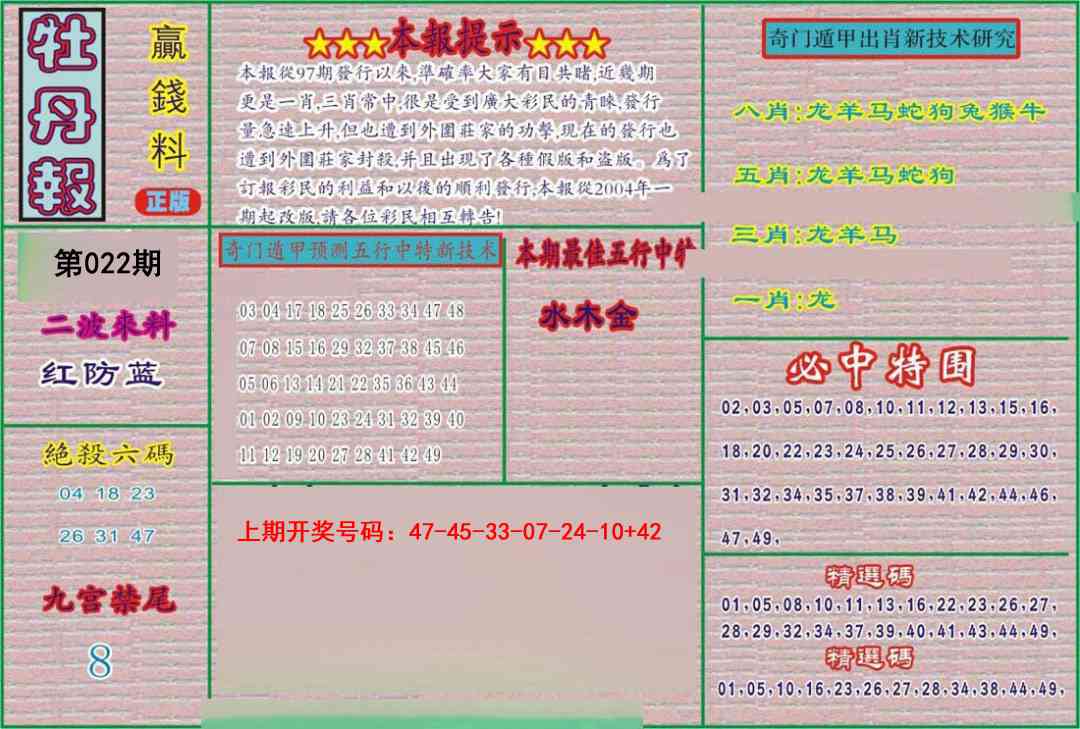 牡丹報
贏錢料
正版
★★★本報提示★★★
本報從97期發行以來,準確率大家有目共睹,近幾期
更是一肖,三肖常中,很是受到廣大彩民的青睞,發行
量急速上升,但也遭到外圍莊家的功擊,現在的發行也
遭到外圍莊家封殺,并且出現了各種假版和盗版。爲了
訂報彩民的利益和以後的順利發行,本報從2004年一
期起改版,請各位彩民相互轉告!
奇门遁甲出肖新技术研究
八肖:龙羊马蛇狗兔猴牛
五肖:龙羊马蛇狗
三肖:龙羊马
一肖:龙
第022期
二波來料
红防蓝
奇门遁甲预测五行中特新技术
03 04 17 18 25 26 33 34 47 48
07 08 15 16 29 32 37 38 45 46
05 06 13 14 21 22 35 36 43 44
01 02 09 10 23 24 31 32 39 40
11 12 19 20 27 28 41 42 49
本期最佳五行中
水木金
必中特围
02,03,05,07,08,10,11,12,13,15,16,
18,20,22,23,24,25,26,27,28,29,30,
31,32,34,35,37,38,39,41,42,44,46,
47,49,
絕殺六碼
04 18 23
26 31 47
九宫禁尾
8
上期开奖号码：47-45-33-07-24-10+42
精選碼
01,05,08,10,11,13,16,22,23,26,27,
28,29,32,34,37,39,40,41,43,44,49,
精選碼
01,05,10,16,23,26,27,28,34,38,44,49,